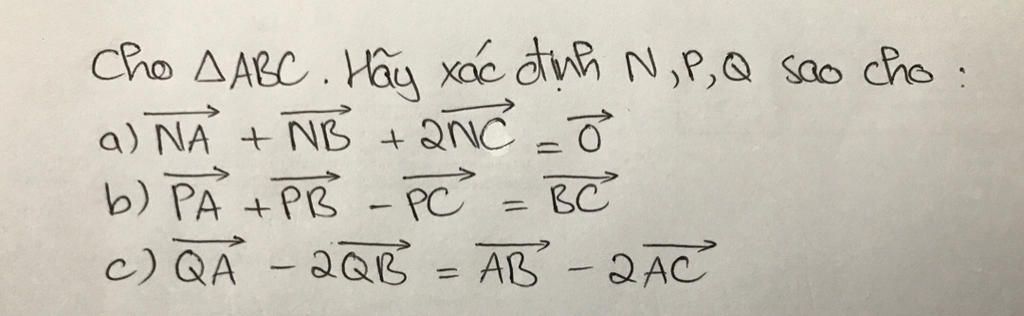 Cho △ABC. Hãy xác định N, P, Q sao cho :
a) $\overrightarrow{NA} + \overrightarrow{NB} + 2\overrightarrow{NC} = \overrightarrow{0}$
b) $\overrightarrow{PA} + \overrightarrow{PB} - \overrightarrow{PC} = \overrightarrow{BC}$
c) $\overrightarrow{QA} - 2\overrightarrow{QB} = \overrightarrow{AB} - 2\overrightarrow{AC}$